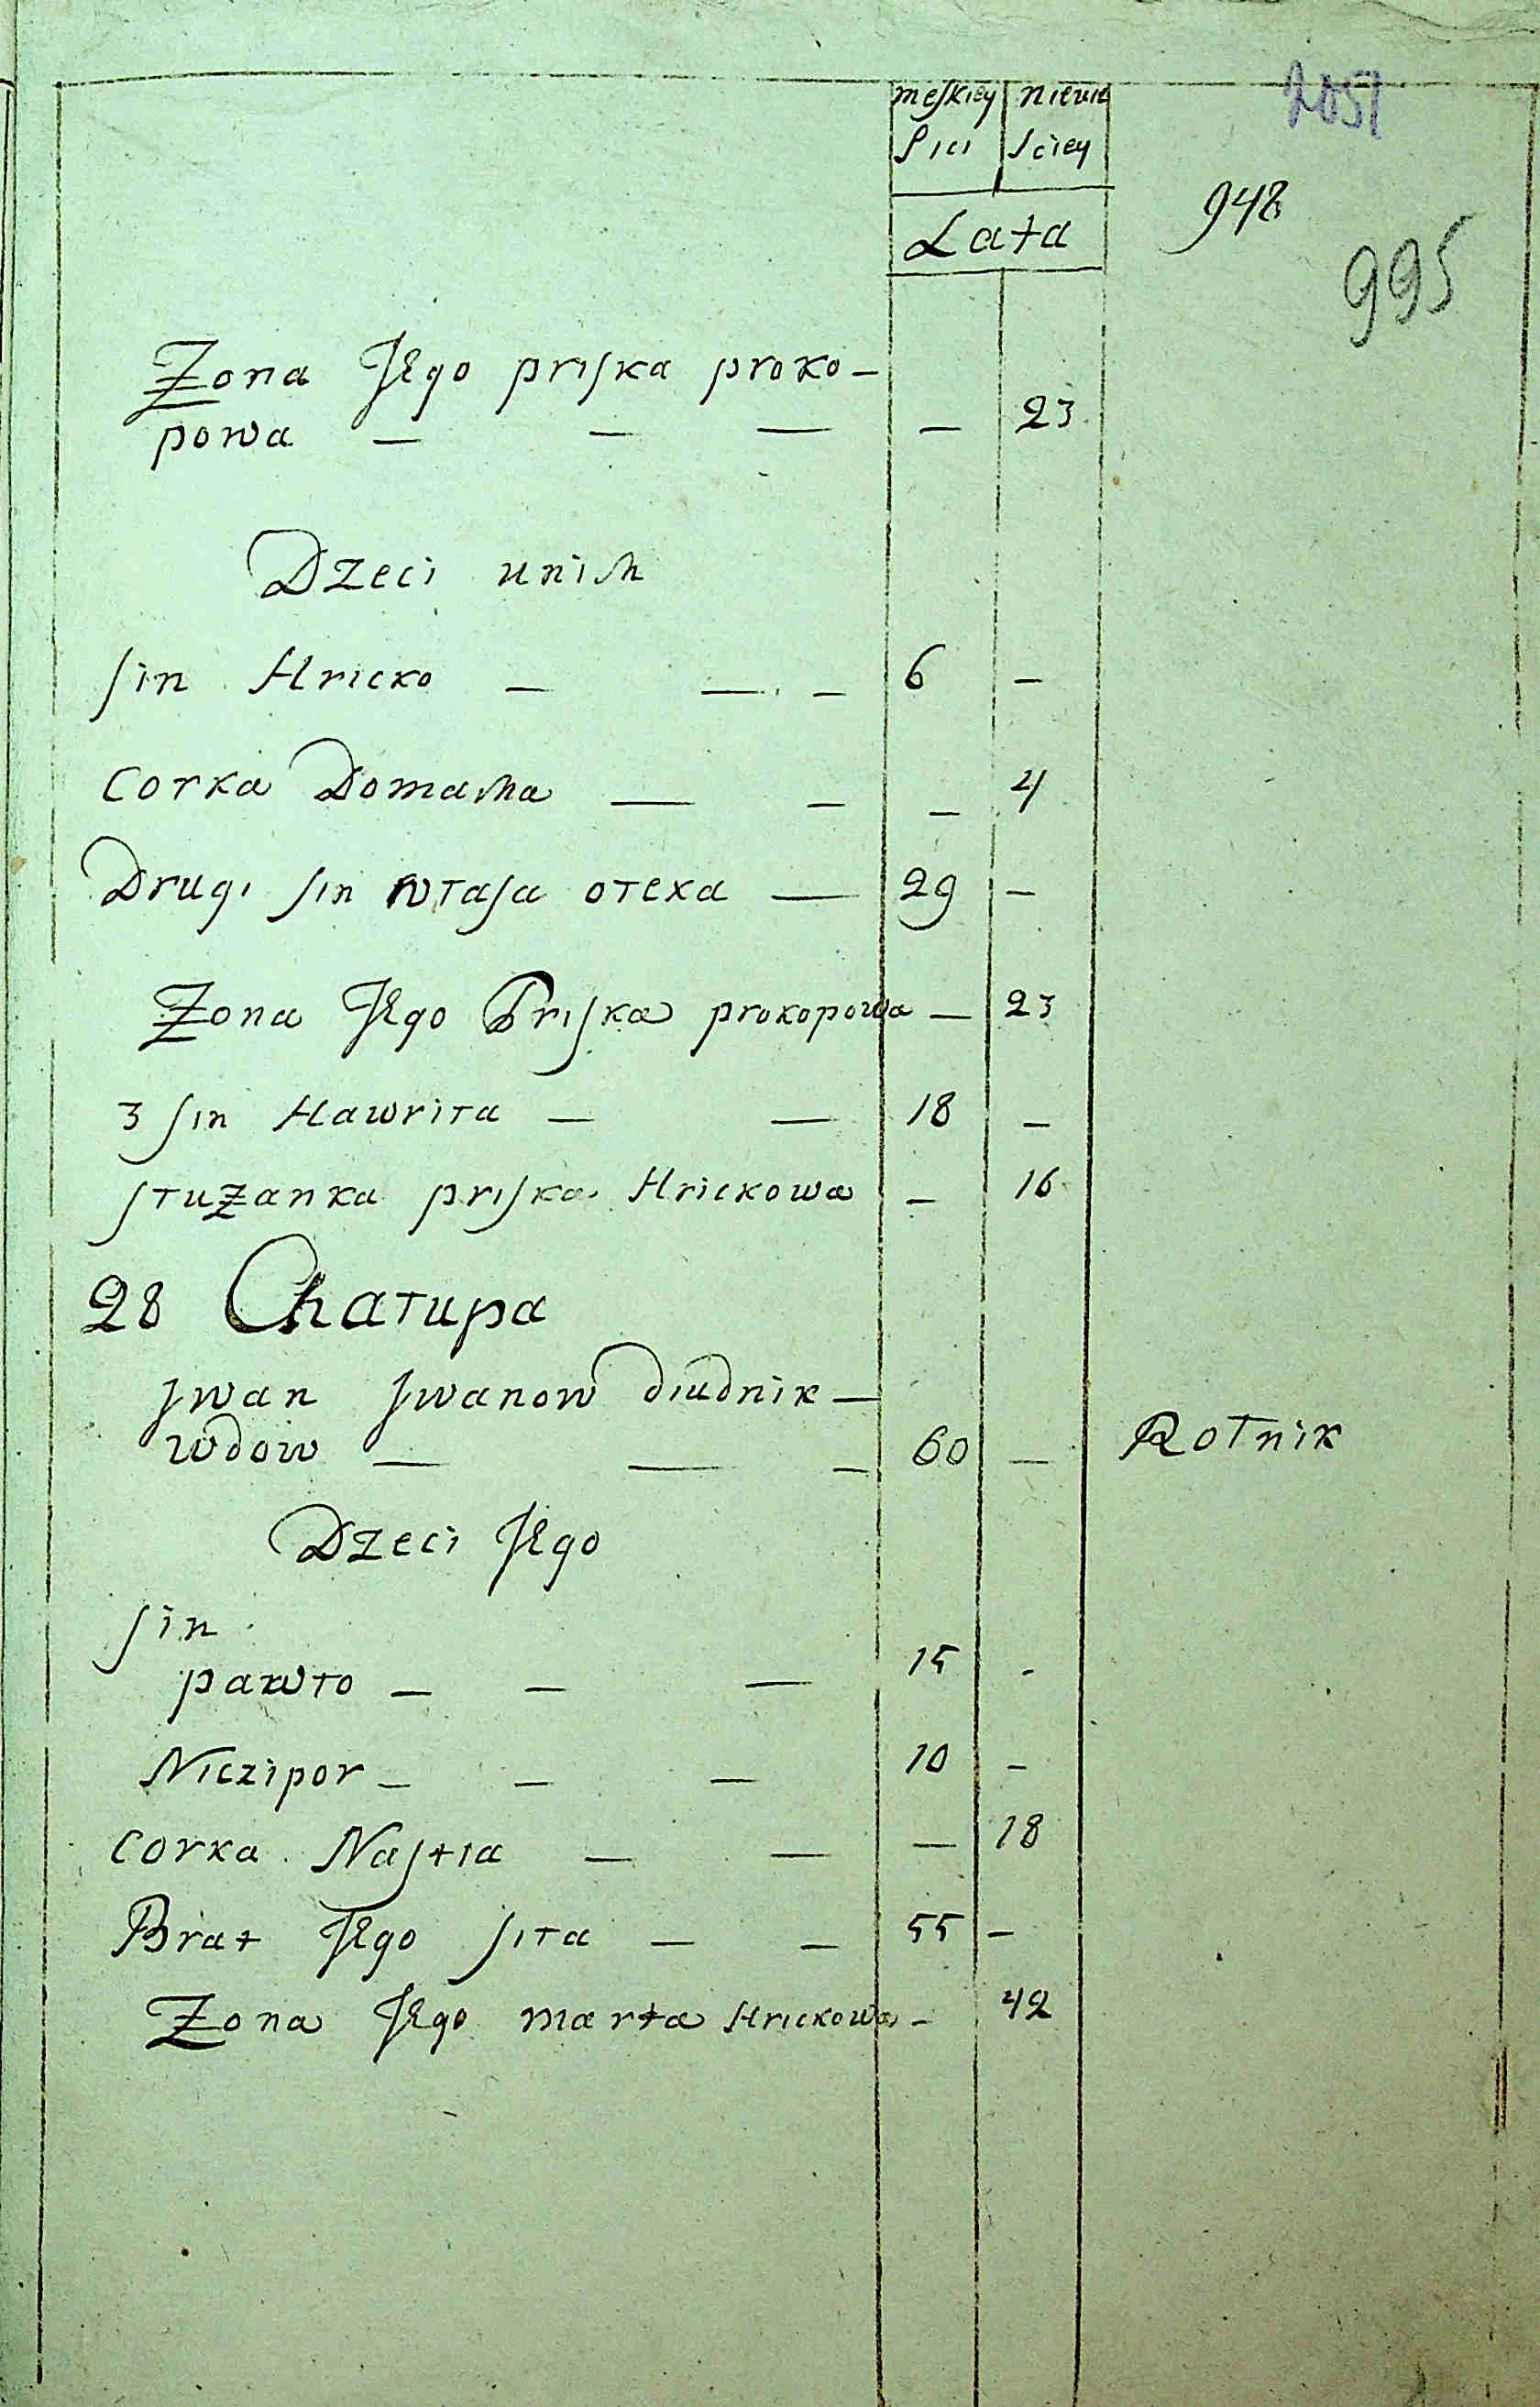 meskiey niewie
Płci sciey
Lata
2051
948
995
Zona Jego priska proko-
powa — — — — 23
Dzeci unich
sin Hricko — — — 6 —
Corka Domacha — — — 4
Drugi sin własa otexa — 29 —
Zona Jego Priska prokopowa — 23
3 sin Hawriła — — 18 —
słuzanka priska Hrickowa — 16
28 Chałupa
Jwan Jwanow diudnik —
wdow — — — 60 — Rolnik
Dzeci Jego
sin
pawło — — — 15 -
Niczipor — — — 10 —
Corka Nastia — — — 18
Brat Jego siła — — 55 —
Zona Jego marta Hrickowa — 42